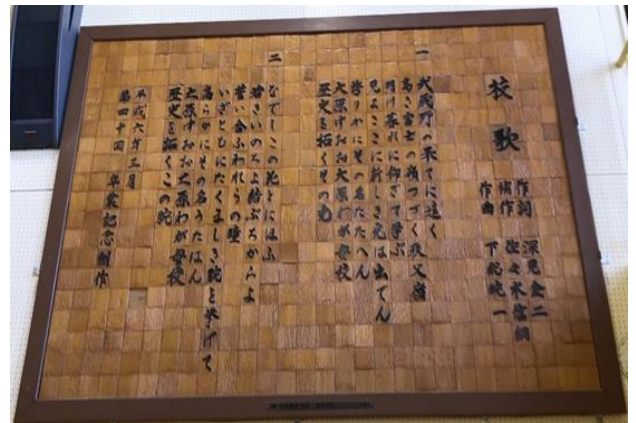 校歌
作詞 深見
補作 佐々木信綱
作曲 下総皖一
一
野の果てに遠く
高き富士の嶺つづく秩父嶺
明け暮れに仰ぎて学ぶ
見よここに新しき光は出でん
誇りかにその名たたへん
大原中おお大原わが母校
歴史を拓くその光
二
なでしこの花とにほふ
若きいのちよ結ぶちからよ
誓い合ふわれらの瞳
いざともにたくましき腕を挙げて
高らかにその名うたはん
大原中おお大原わが母校
歴史を拓くこの腕
平成六年三月
第四十回 卒業記念制作